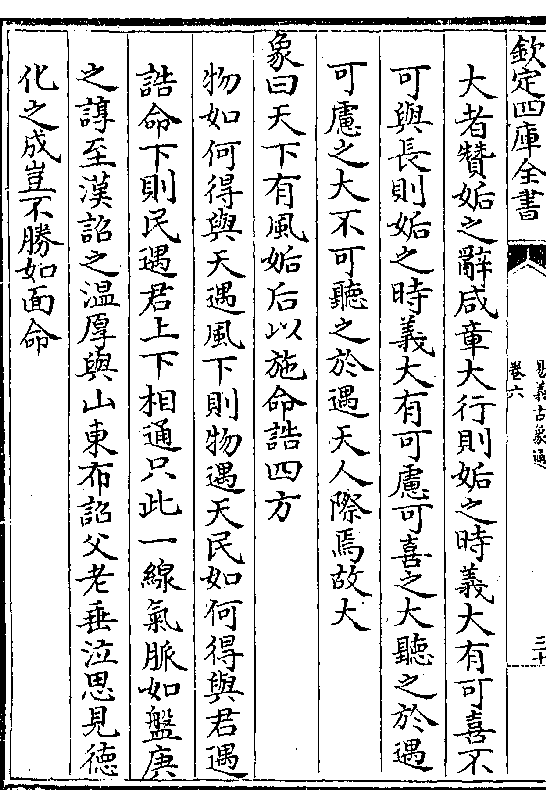 欽定四庫全書
易義古象通
卷六
三十
大者贊姤之辭咸章大行則姤之時義大有可喜不
可與長則姤之時義大有可慮可喜之大聽之於遇
可慮之大不可聽之於遇天人際焉故大
象曰天下有風姤后以施命誥四方
物如何得與天遇風下則物遇天民如何得與君遇
誥命下則民遇君上下相通只此一線氣脈如盤庚
之諄至漢詔之溫厚與山東布詔父老垂泣思見德
化之成豈不勝如面命